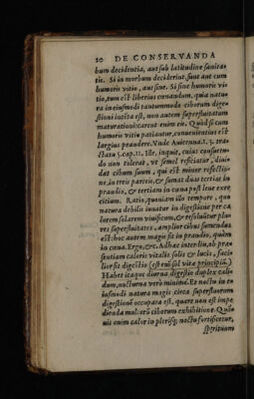 20 DE CONSERVANDA
bum decidentia, aut sub latitudine sanita-
tis. Si in morbum deciderint, sunt aut cum
humoris vitio, aut sine. Si sine humoris vi-
tio, tum est liberius cœnandum, quia natu-
ra in eiusmodi tantummodo ciborum dige-
stioni intenta est, non autem superfluitatum
maturationi: carent enim eis. Quòd si cum
humoris vitio patiantur, conuenientius est
largius prandere. Vnde Auicenna
cap. Ille, inquit, cuius consuetu-
do non tolerat, vt semel reficiatur, diui-
dat cibum suum, qui est minor refectio-
ne, in tres partes, & sumat duas tertias in
prandio, & tertiam in cœna post leue exer-
citium. Ratio, quoniam illo tempore, quo
natura debilis iuuatur in digestione per ca
lorem solarem viuificum, & resoluitur plu-
res superfluitates, amplior cibus sumendus
est: hoc autem magis fit in prandio, quàm
in cœna. Ergo, &c. Adhæc interdiu, ob præ-
sentiam caloris vitalis solis & lucis, faci-
lior fit digestio (est enim sol vitæ principiũ.)
Habet itaque diurna digestio duplex cali-
dum, nocturna verò minimè. Et noctu in e-
iusmodi natura magis circa superfluorum
digestionē occupata est, quare non est impe-
dienda mala cibatium exhibitione. Quò-
nis enim calor in plerisq; noctu fortificetur,
spirituum